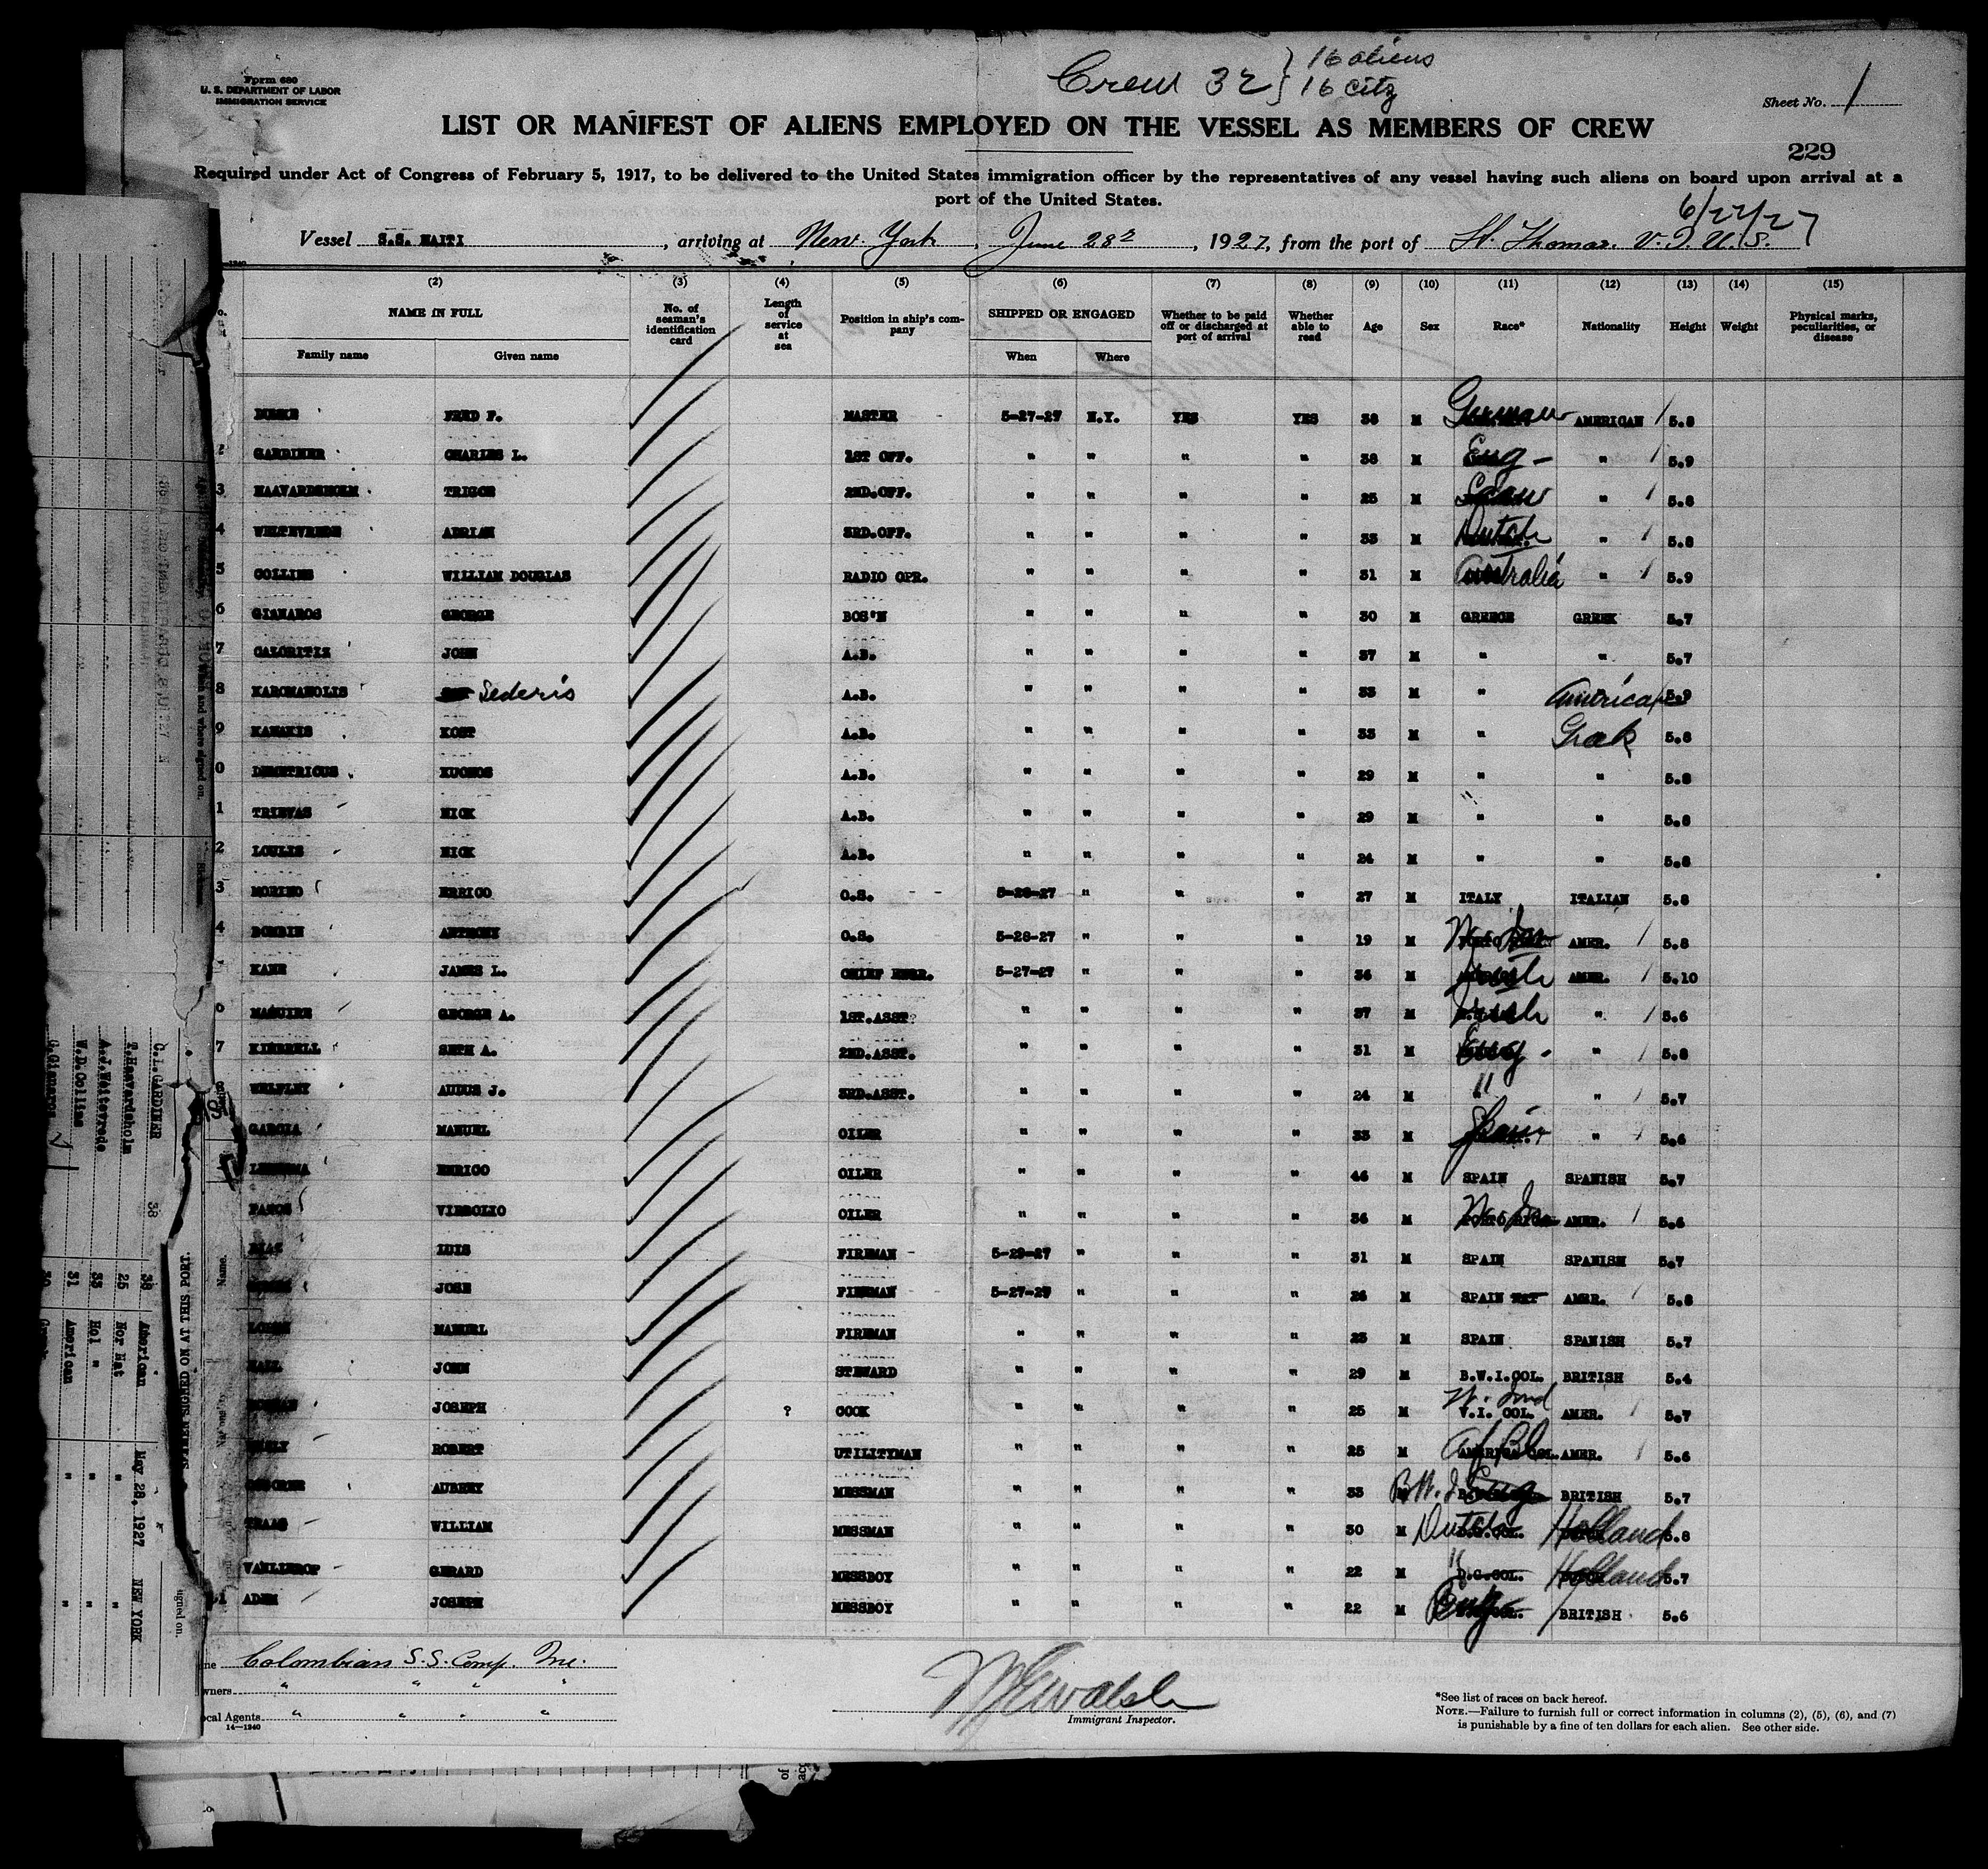 Form 680
U. S. DEPARTMENT OF LABOR
IMMIGRATION SERVICE
Crew 32 } 16 aliens
16 Citz
Sheet No. 1
LIST OR MANIFEST OF ALIENS EMPLOYED ON THE VESSEL AS MEMBERS OF CREW
229
Required under Act of Congress of February 5, 1917, to be delivered to the United States immigration officer by the representatives of any vessel having such aliens on board upon arrival at a
port of the United States.
6/22/27
Vessel S.S. HAITI, arriving at New York, June 28, 1927, from the port of St. Thomas. V. I. U. S.
(2) (3) (4) (5) (6) (7) (8) (9) (10) (11) (12) (13) (14) (15)
NAME IN FULL No. of seaman's identification card Length of service at sea Position in ship's company SHIPPED OR ENGAGED Whether to be paid off or discharged at port of arrival Whether able to read Age Sex Race* Nationality Height Weight Physical marks, peculiarities, or disease
Family name Given name When Where
FRED F. MASTER 5-27-27 N.Y. YES YES 38 M German AMERICAN 5.8
2 GARDINER CHARLES L. 1ST OFF. " " " " 38 M Eng " 5.9
3 HAAVARDSHOLM TRIGGE 2ND.OFF. " " " " 25 M Scan " 5.8
4 WEITEVREDE ADRIAN 3RD.OFF. " " " " 33 M Dutch " 5.8
5 COLLINS WILLIAM DOUGLAS RADIO OPR. " " " " 31 M Australia " 5.9
6 GIANAROS GEORGE BOS'N " " " " 30 M GREECE GREEK 5.7
7 CALORITIS JOHN A.B. " " " " 37 M " " 5.7
8 KAROMANOLIS Sederis A.B. " " " " 33 M " American 5.9
9 KANAKIS KOST A.B. " " " " 33 M " Greek 5.8
0 DEMETRIOUS KUOMOS A.B. " " " " 29 M " " 5.8
1 TRIEVAS NICK A.B. " " " " 29 M " " 5.8
2 LOULIS NICK A.B. " " " " 24 M " " 5.8
3 MORINO ERRICO O.S. 5-28-27 " " " 27 M ITALY ITALIAN 5.8
4 BOMBIN ANTHONY O.S. 5-28-27 " " " 19 M AMER. 5.8
KANE JAMES L. CHIEF ENGR. 5-27-27 " " " 36 M Irish AMER. 5.10
6 MAGUIRE GEORGE A. 1ST.ASST. " " " " 37 M Irish " 5.6
7 KIMBRELL SETH A. 2ND.ASST. " " " " 31 M Eng " 5.8
WELFLEY AUDUS J. 3RD.ASST. " " " " 24 M " " 5.7
GARCIA MANUEL OILER " " " " 33 M Spain " 5.6
LEDESMA ENRICO OILER " " " " 46 M SPAIN SPANISH 5.7
RAMOS VIRBOLIO OILER " " " " 36 M PORTO RICO AMER. 5.6
DIAZ LUIS FIREMAN 5-29-27 " " " 31 M SPAIN SPANISH 5.7
JOSE FIREMAN 5-27-27 " " " 26 M SPAIN AMER. 5.8
MANUEL FIREMAN " " " " 25 M SPAIN SPANISH 5.7
HALL JOHN STEWARD " " " " 29 M B.W.I.COL. BRITISH 5.4
JOSEPH ? COOK " " " " 25 M W. Ind V.I. COL. AMER. 5.7
ROBERT UTILITYMAN " " " " 25 M Af Bl AMERICA COL. AMER. 5.6
AUBREY MESSMAN " " " " 33 M B.W.I. BRITISH 5.7
WILLIAM MESSMAN " " " " 30 M Dutch Holland 5.8
VANLIEROP GERARD MESSBOY " " " " 22 M " D.G.COL. Holland 5.7
31 ADEM JOSEPH MESSBOY " " " " 22 M BRITISH 5.6
Colombian S.S. Comp. Inc.
Owners " " " "
Local Agents " " " "
14—1240
Immigrant Inspector.
*See list of races on back hereof.
NOTE.—Failure to furnish full or correct information in columns (2), (5), (6), and (7)
is punishable by a fine of ten dollars for each alien. See other side.
C.L.GARDINER 38 American May 28, 1927 NEW YORK
T.Haavardsholm 25 Nor Nat " "
A.J.Weitevrede 33 Hol " " "
W.D.Collins 31 American " "
G.Gianaros
SEAMEN SIGNED ON AT THIS PORT.
Name.
signed on.